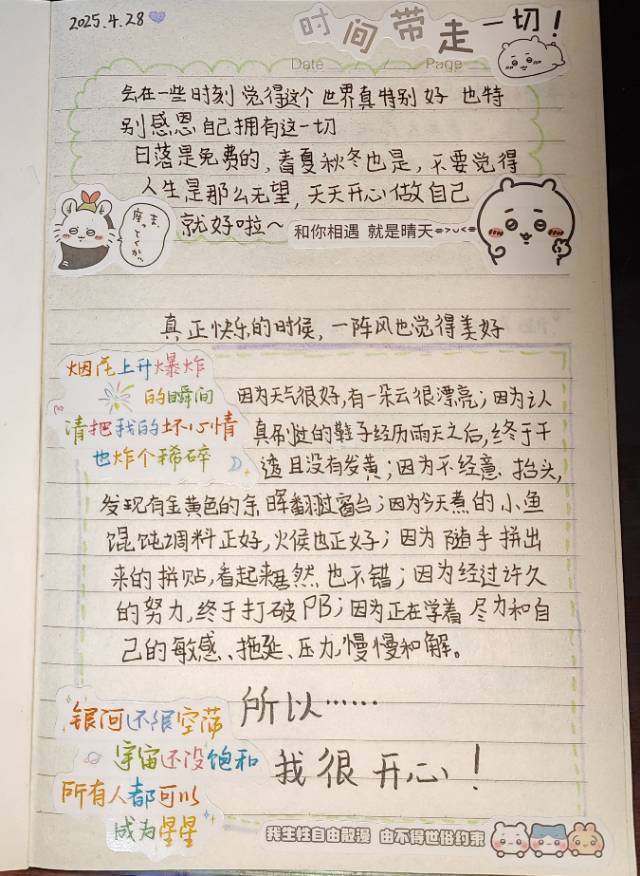 2025.4.28
时间带走一切!
Date
Page
会在一些时刻觉得这个世界真特别好 也特
别感恩自己拥有这一切
日落是免费的,春夏秋冬也是,不要觉得
人生是那么无望,天天开心做自己
就好啦~
和你相遇 就是晴天
真正快乐的时候,一阵风也觉得美好
烟花上升爆炸
的瞬间
请把我的坏心情
也炸个稀碎
因为天气很好,有一朵云很漂亮;因为认
真刷过的鞋子经历雨天之后,终于干
透且没有发黄;因为不经意 抬头,
发现有金黄色的余晖翻过窗台;因为今天煮的小鱼
馄饨调料正好,火候也正好;因为 随手拼出
来的拼贴,看起来居然也不错;因为经过许久
的努力,终于打破PB;因为正在学着 尽力和自
己的敏感、拖延、压力,慢慢和解。
所以……
我很开心!
银河还很空荡
宇宙还没饱和
所有人都可以
成为星星
我生性自由散漫 由不得世俗约束